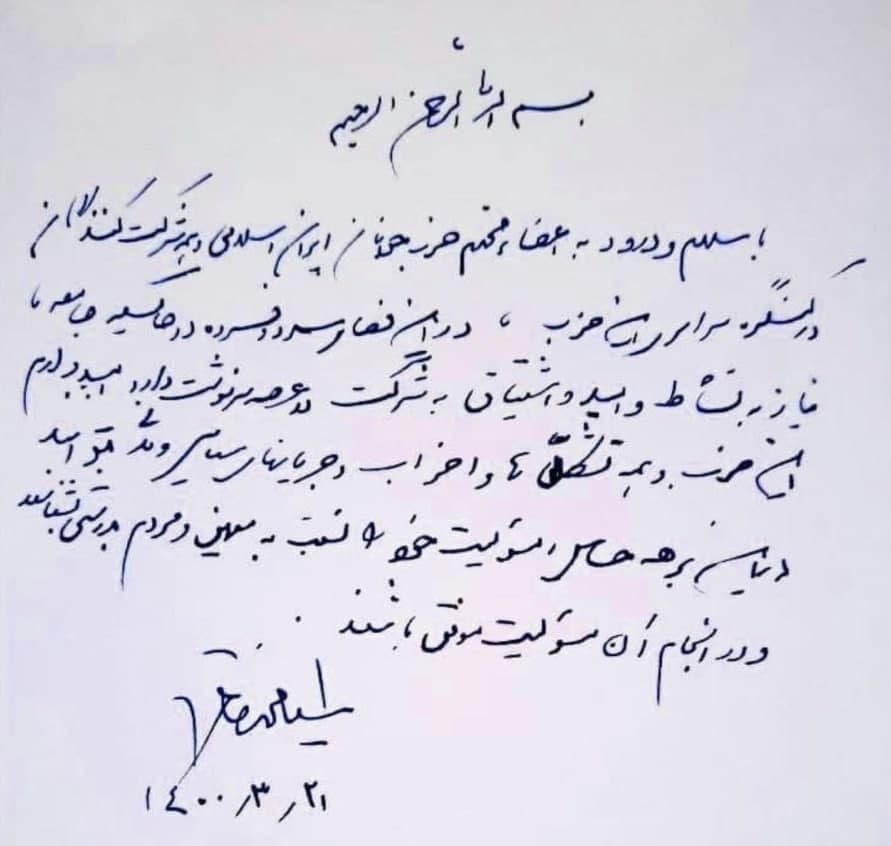 بسم الله الرحمن الرحیم
با سلام و درود به اعضاء محترم حزب جوانان ایران اسلامی و همه شرکت کنندگان
در کنگره سراسری این حزب ، در این فضای سرد و افسرده در حاکمیت جامعه ،
نیاز به نشاط و امید و اشتیاق به شرکت در عرصه سرنوشت دارد، امیدوارم
این حزب و همه تشکل ها و احزاب و جریانهای سیاسی و مدنی بتوانند
در این برهه حساس مسئولیت خود را نسبت به میهن و مردم بدرستی بشناسند
و در انجام آن مسئولیت موفق باشند
سید محمد خاتمی
۱۴۰۰/۳/۲۱